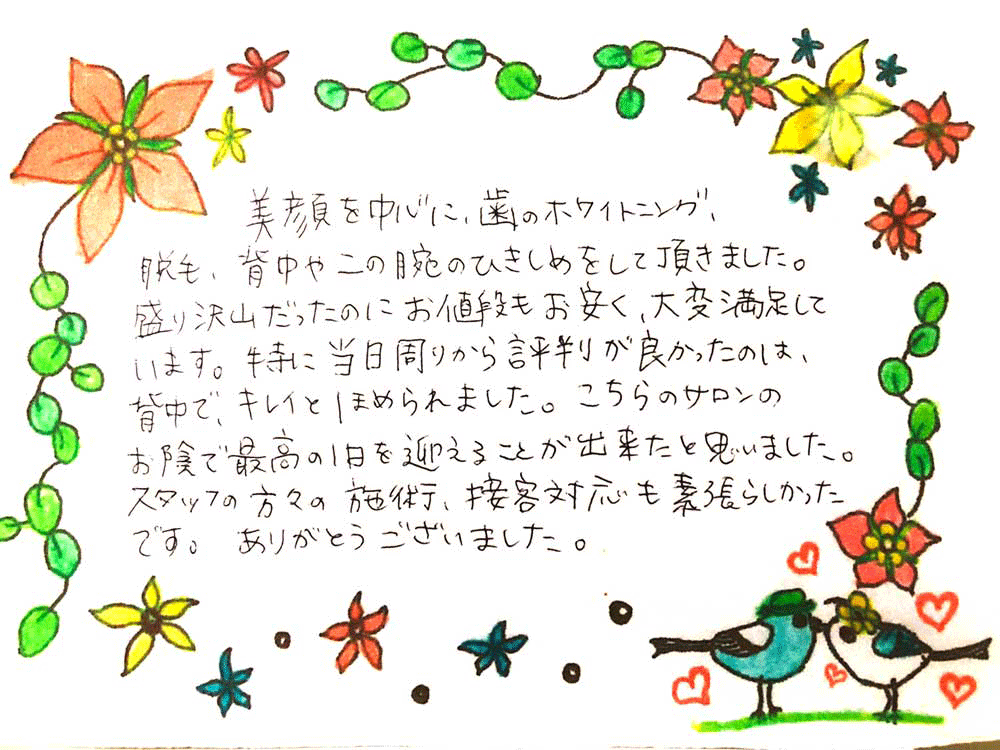 美顔を中心に、歯のホワイトニング、
脱毛、背中や二の腕のひきしめをして頂きました。
盛り沢山だったのにお値段もお安く、大変満足して
います。特に当日周りから評判が良かったのは、
背中で、キレイとほめられました。こちらのサロンの
お陰で最高の1日を迎えることが出来たと思いました。
スタッフの方々の施術、接客対応も素張らしかった
です。ありがとうございました。